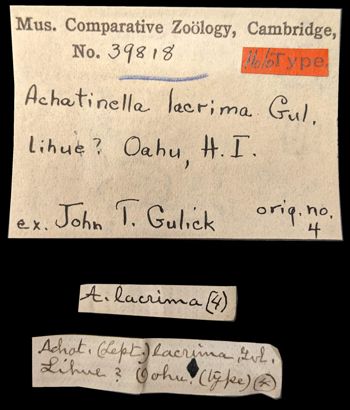 Mus. Comparative Zoölogy, Cambridge,
No. 39818
HoloType
Achatinella lacrima Gul.
Lihue? Oahu, H.I.
ex. John T. Gulick
orig. no.
4
A. lacrima (4)
Achat. (Lept.) lacrima, Gul.
Lihue? Oahu. (type)